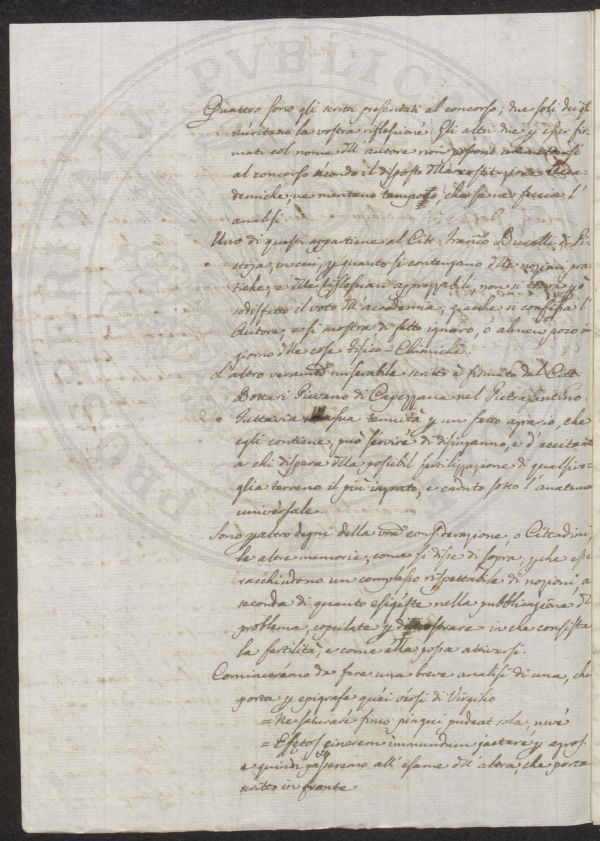 Quattro sono gli scritti presentati al concorso; due soli degli
meritano la vostra riflessione. Gli altri due y esser fir-
mati col nome dll autore non possono
al concorso secondo il disposto dlla costituzione Acca-
demiche, ne meritano tampoco, che se ne faccia l'
analisi.
Uno di questi appartiene al Citt. Franco Bucelli di Pi-
stoja, in cui, y quanto si contengano dlle nozioni pra-
tiche, e dlle riflessioni apprezzabili, non si trova yò
sodisfatto il voto dll accademia; giacche si confessa l'
Autore, e si mostra di fatto ignaro, o almen poco in
giorno dlle cose Fisico-Chimiche.
L'altro veramte miserabile scritto è firmato dal Citt
Bottari Pievano di Capezzana nel Pietrasantino.
Tuttavia la sua tenuità y un fatto agrario, che
egli contiene, può servire di disinganno, e d'eccitante
a chi dispera dlla possibil fertilizzazione di qualsivo-
glia terreno il più ingrato, e caduto sotto l'anatema
universale.
Sono yaltro degni della vra considerazione, o Cittadini,
le altre memorie, come si disse di sopra, yche esse
racchindono un complesso rispettabile di nozioni, a
seconda di quanto esigeste nella pubblicazione dl
problema, copulate y dimostrare in che consiste
la fertilità, e come ella possa attivarsi.
Cominceremo da fare una breve analisi di una, che
porta y epigrafe quei versi di Virgilio
= Ne saturare fimo pingui pudeat sola, neve
= Effetos cinerem immundum jactare y agros
e quindi passeremo all'esame dll altra, che porta
scritto in fronte
PROSPERITATI PUBLICAE